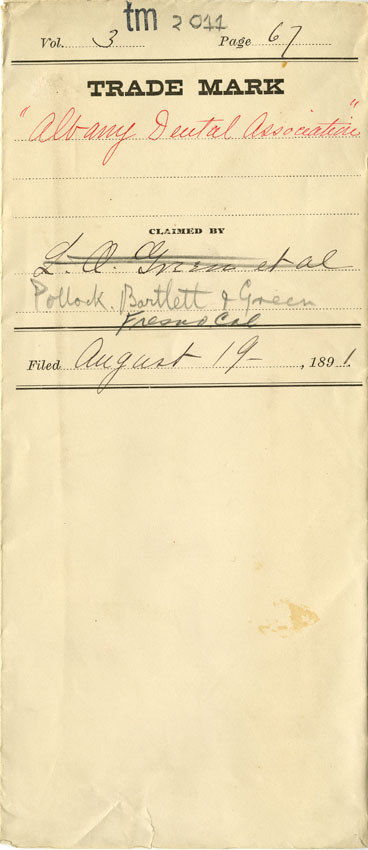 tm 2011
Vol. 3 Page 67
TRADE MARK
"Albany Dental Association"
CLAIMED BY
L. A. Green et al
Pollock, Bartlett & Green
Fresno Cal
Filed August 19 - , 1891.